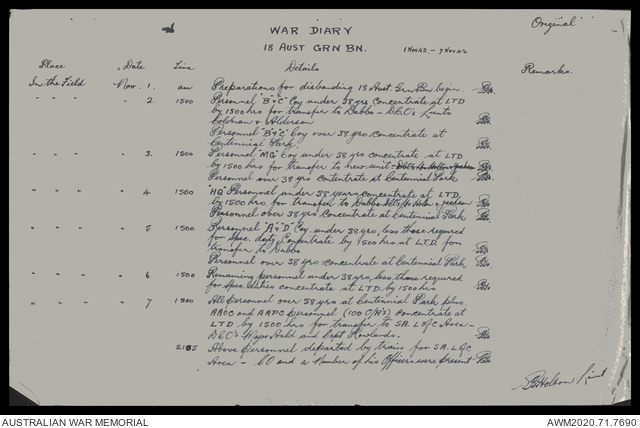 Original
WAR DIARY
18 AUST GRN BN. 1 Nov 42 - 7 Nov 42
Place Date Time Details Remarks.
In the Field Nov. 1. am Preparations for disbanding 18 Aust. Grn Bn begin.
" " " " 2. 1500 Personnel "B & C" Coy under 38 yrs concentrate at LTD
by 1500 hrs for transfer to Dubbo - D&O's Lieuts
Colohan & Alderson
Personnel "B & C" Coy over 38 yrs concentrate at
Centennial Park.
" " " " 3. 1500 Personnel "MG" Coy under 38 yrs concentrate at LTD
by 1500 hrs for transfer to new unit
Personnel over 38 yrs Contentrate at Centennial Park
" " " " 4 1500 "HQ" Personnel under 38 years concentrate at LTD,
by 1500 hrs. for transfer to Dubbo.
Personnel over 38 yrs Concentrate at Centennial Park
" " " " 5 1500 Personnel "A & D" Coy under 38 yrs, less those required
for spec. duty, Concentrate by 1500 hrs at L.T.D. for
transfer to Dubbo
Personnel over 38 yrs concentrate at Centennial Park
" " " " 6 1500 Remaining personnel under 38 yrs, less those required
for spec. duties concentrate at LTD by 1500 hrs
" " " " 7 1500 All personnel over 38 yrs at Centennial Park plus
AAOC and AAPC personnel (100 O/R's) concentrate at
LTD by 1500 hrs for transfer to S.A. L of C Area -
D&O's Major Auld and Capt Rowlands.
2105 Above personnel departed by train for S.A. L of C
Area - CO and a Number of his Officers were present
AUSTRALIAN WAR MEMORIAL AWM2020.71.7690